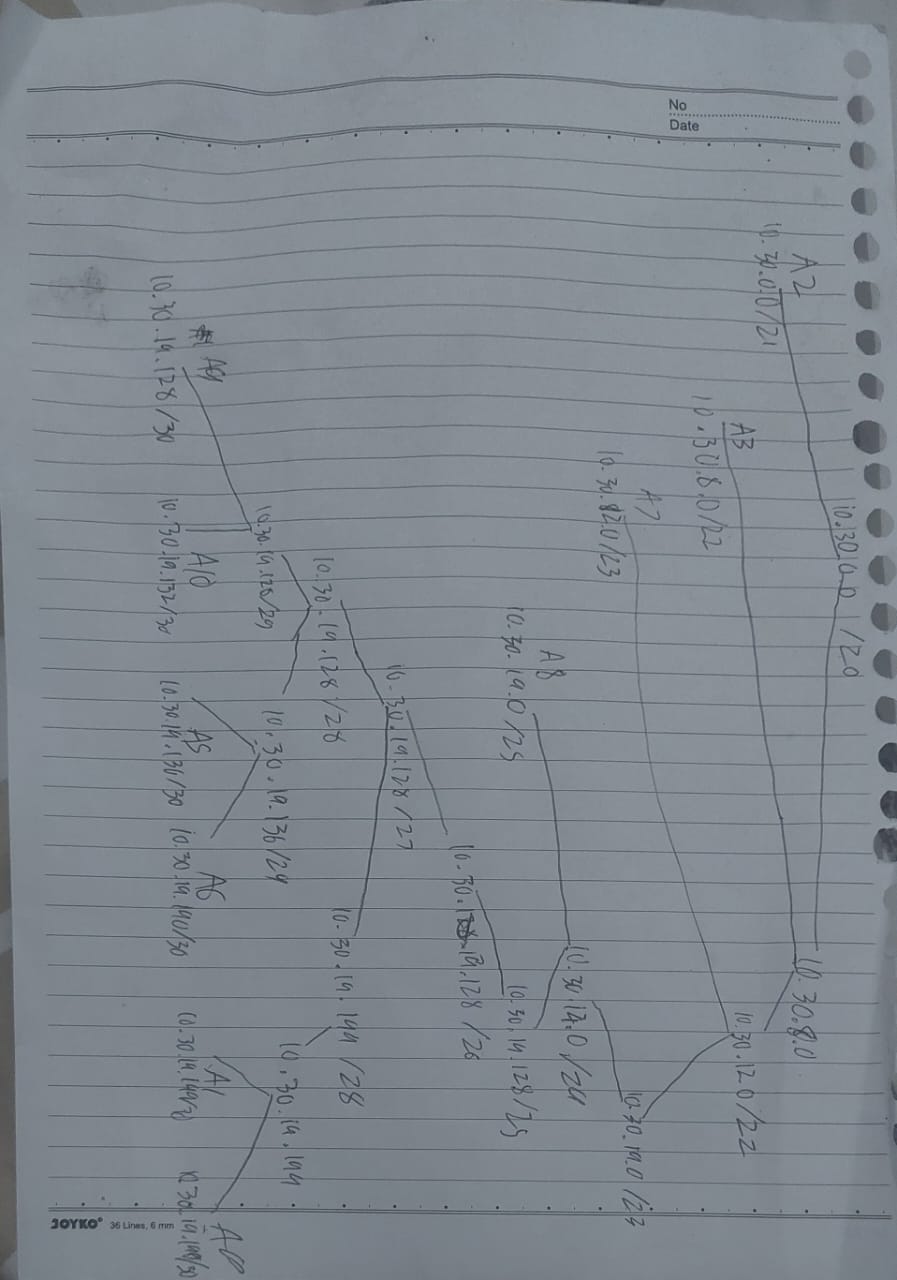 10.30.0.0 /20
A2
10.30.0.0/21
10.30.8.0
A3
10.30.8.0/22
10.30.12.0/22
A7
10.30.12.0/23
10.30.14.0 /23
10.30.14.0 /24
A8
10.30.14.0 /25
10.30.14.128/25
10.30.14.128 /26
10.30.14.128/27
10.30.14.128/28
10.30.14.144 /28
10.30.14.128/29
10.30.14.136/29
10.30.14.144
A9
10.30.14.128/30
A10
10.30.14.132/30
A5
10.30.14.136/30
A6
10.30.14.140/30
A1
10.30.14.144/30
10.30.14.148/30
No
Date
JOYKO 36 Lines, 6 mm